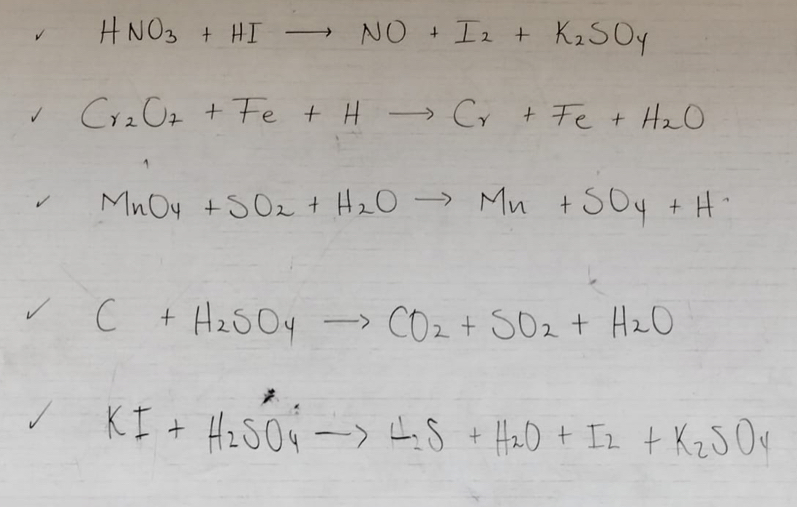 ✓ HNO₃ + HI ⟶ NO + I₂ + K₂SO₄
✓ Cr₂O₇ + Fe + H ⟶ Cr + Fe + H₂O
✓ MnO₄ + SO₂ + H₂O → Mn + SO₄ + H
✓ C + H₂SO₄ ⟶ CO₂ + SO₂ + H₂O
✓ KI + H₂SO₄ ⟶ H₂S + H₂O + I₂ + K₂SO₄